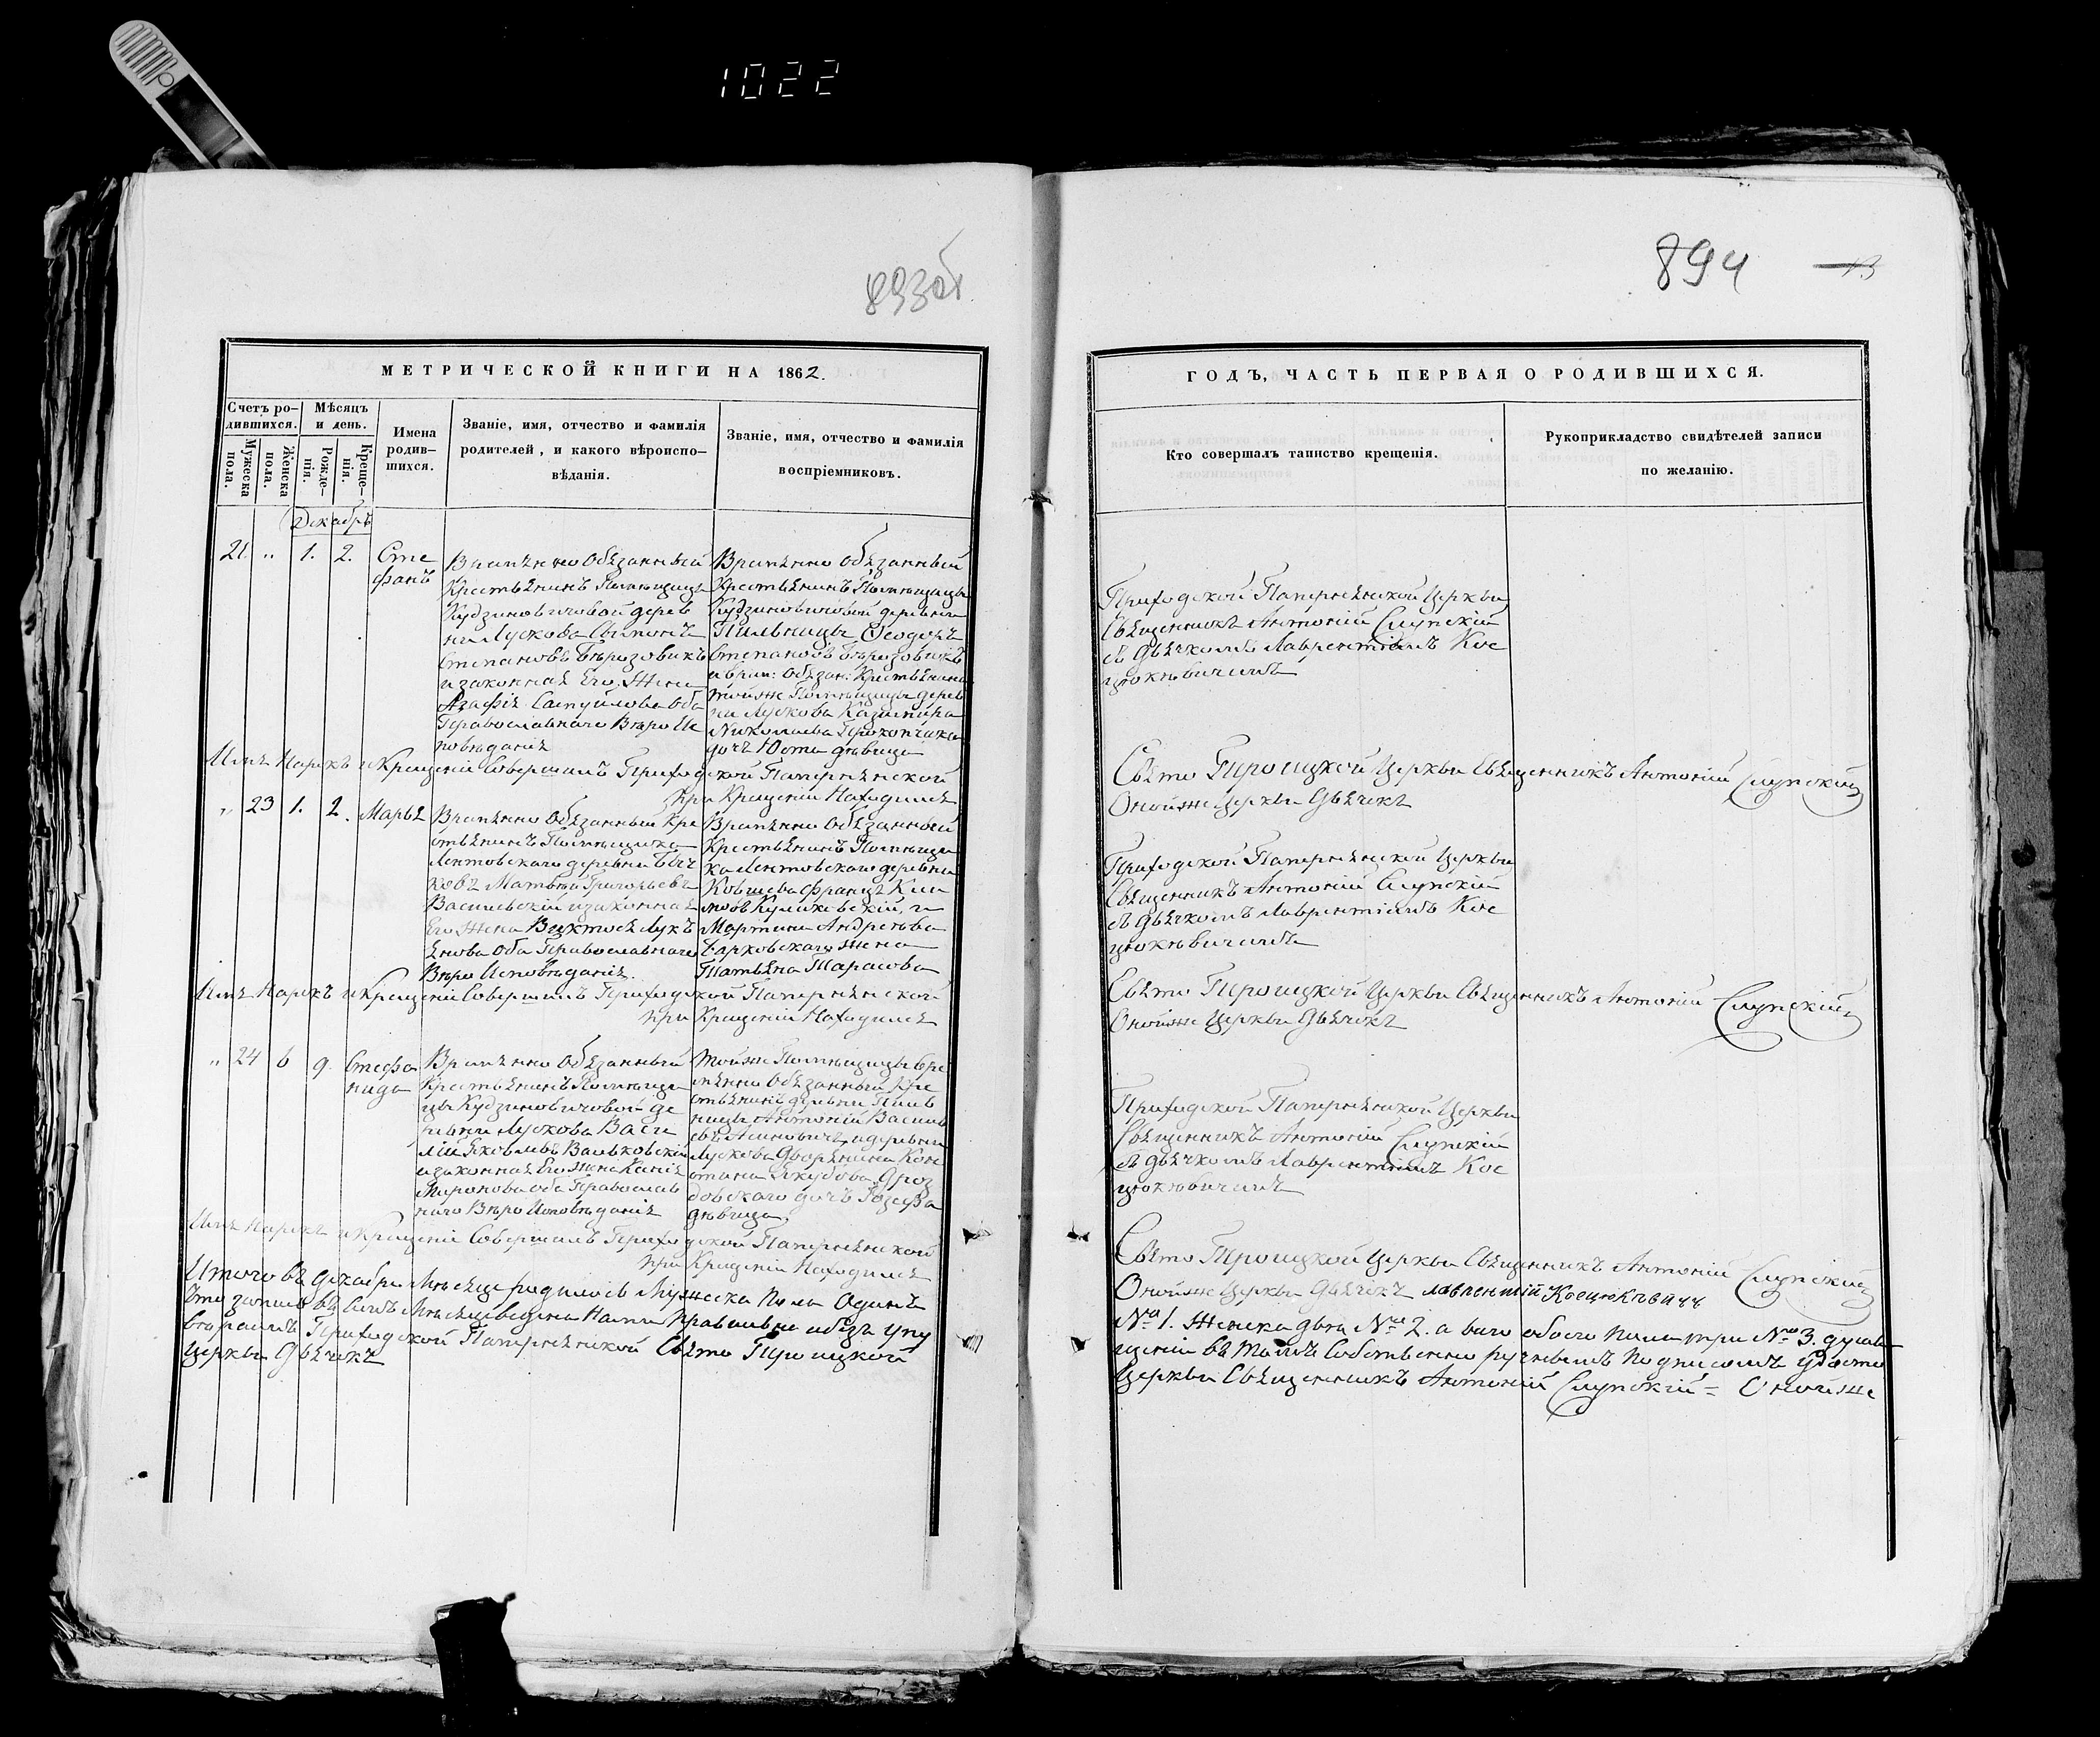 1022
893об.
МЕТРИЧЕСКОЙ КНИГИ НА 1862.
Счетъ ро-
дившихся.
Мужеска
пола.
Женска
пола.
Мѣсяцъ
и день.
Рожде-
нія.
Креще-
нія.
Имена
родив-
шихся.
Званіе, имя, отчество и фамилія
родителей, и какого вѣроиспо-
вѣданія.
Званіе, имя, отчество и фамилія
воспріемниковъ.
Декабрь
21. „ 1. 2.
Сте
фанъ
Времянно Обязанный
Крестьянинъ Помѣщицы
Кудзиновичовой дерев
ни Лускова Сымонъ
Степановъ Бѣрозовикъ
и законная Его Жена
Агафія Самуилова Оба
Православнаго Вѣро Ис
повѣданія
Времянно Обязанный
Крестьянинъ Помѣщицы
Кудзиновичовой деревни
Пильницы Ѳеодоръ
Степановъ Бѣрозовикъ
и врем: Обязан: Крестьянина
тойже Помѣщицы дерев
ни Лускова Казимира
Николаева Прокопчика
дочь Юста дѣвица
Имя Нарекъ и Крещеніе Совершилъ Приходской Папернянской
при Крещеніи Находился
„ 23 1. 2. Марья
Времянно Обязанный Кре
стьянинъ Помѣщика
Лентовскаго деревни Быч
ковъ Матвѣй Григорьевъ
Васильевскій и законная
Его Жена Виктося Лукъ
янова Оба Православнаго
Вѣро Исповѣданія.
Времянно Обязанный
Крестьянинъ Помѣщи
ка Лентовскаго деревни
Ковшева Францъ Кли
мовъ Куликовскій, и
Мартина Андреева
Барковскаго Жена
Татьяна Тарасова
Имя Нарекъ и Крещеніе Совершилъ Приходской Папернянской
при Крещеніи Находился
„ 24 6 9.
Стефа
нида
Времянно Обязанный
Крестьянинъ Помѣщи
цы Кудзиновичовой де
ревни Лускова Васи
лій Яковлевъ Вальковскій
и законная Его Жена Ксенія
Миронова Оба Православ
наго Вѣро Исповѣданія
Тойже Помѣщицы Вре
мянно Обязанный Кре
стьянинъ деревни Пиль
ницы Антоній Василь
евъ Асиновичъ и деревни
Лускова Дворянина Конс
тана Якубова Дроз
довскаго дочь Юзефа
дѣвица
Имя Нарекъ и Крещеніе Совершилъ Приходской Папернянской
при Крещеніи Находился
Итого въ Декабрѣ Мѣсяце родилось Мужеска Пола Одинъ
Что запись въ семъ Мѣсяце ведена Нами Правильно и безъ упу
вѣряемъ Приходской Папернянской Свято Троицкой
Церкви Дьячекъ
894
13
ГОДЪ, ЧАСТЬ ПЕРВАЯ О РОДИВШИХСЯ.
Кто совершалъ таинство крещенія.
Рукоприкладство свидѣтелей записи
по желанію.
Приходской Папернянской Церкви
Священникъ Антоній Слупскій
съ Дьячкомъ Лаврентіемъ Кос
цюкѣвичемъ
Свято Троицкой Церкви Священникъ Антоній Слупскій
Онойже Церкви Дьячекъ
Приходской Папернянской Церкви
Священникъ Антоній Слупскій
съ Дьячкомъ Лаврентіемъ Кос
цюкѣвичемъ
Свято Троицкой Церкви Священникъ Антоній Слупскій
Онойже Церкви Дьячекъ
Приходской Папернянской Церкви
Священникъ Антоній Слупскій
съ Дьячкомъ Лаврентіемъ Кос
цюкѣвичемъ
Свято Троицкой Церкви Священникъ Антоній Слупскій
Онойже Церкви Дьячекъ Лаврентій Косцюкѣвичъ
№ 1. Женска два № 2. а всего обоего пола три № 3. души
щенія въ томъ Собственно ручнымъ подписомъ Удосто
Церкви Священникъ Антоній Слупскій = Онойже